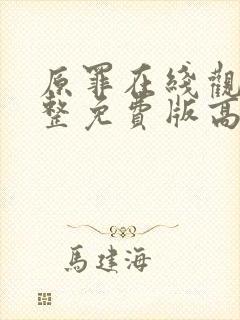 原罪在綫觀
整免費版高
馬建海